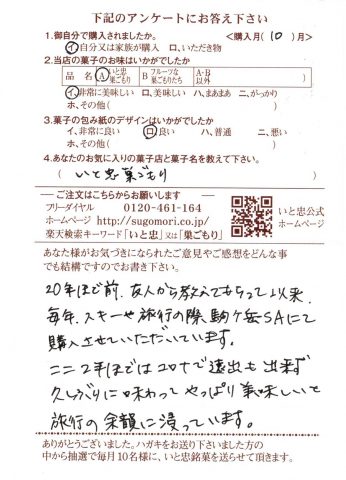 下記のアンケートにお答え下さい
1.御自分で購入されましたか。 <購入月(10)月>
イ、自分又は家族が購入 ロ、いただき物
2.当店の菓子のお味はいかがでしたか
品名 A いと忠巣ごもり B フルーツな巣ごもりたち A・B以外
イ、非常に美味しい ロ、美味しい ハ、まあまあ ニ、がっかり
ホ、その他(
3.菓子の包み紙のデザインはいかがでしたか
イ、非常に良い ロ、良い ハ、普通 ニ、悪い
ホ、その他(
4.あなたのお気に入りの菓子店と菓子名を教えて下さい。
(いと忠巣ごもり )
―ご注文はこちらからお願いします―
フリーダイヤル 0120-461-164
ホームページ http://sugomori.co.jp/
楽天検索キーワード「いと忠」又は「巣ごもり」
いと忠公式
ホームページ
あなた様がお気づきになられたご意見やご感想をどんな事
でも結構ですのでお書き下さい。
20年ほど前、友人から教えてもらって以来、
毎年、スキーや旅行の際、駒ヶ岳SAにて
購入させていただいています。
ここ2年ほどはコロナで遠出も出来ず
久しぶりに味わって やっぱり美味しいと
旅行の余韻に浸っています。
ありがとうございました。ハガキをお送り下さいました方の
中から抽選で毎月10名様に、いと忠銘菓を送らせて頂きます。